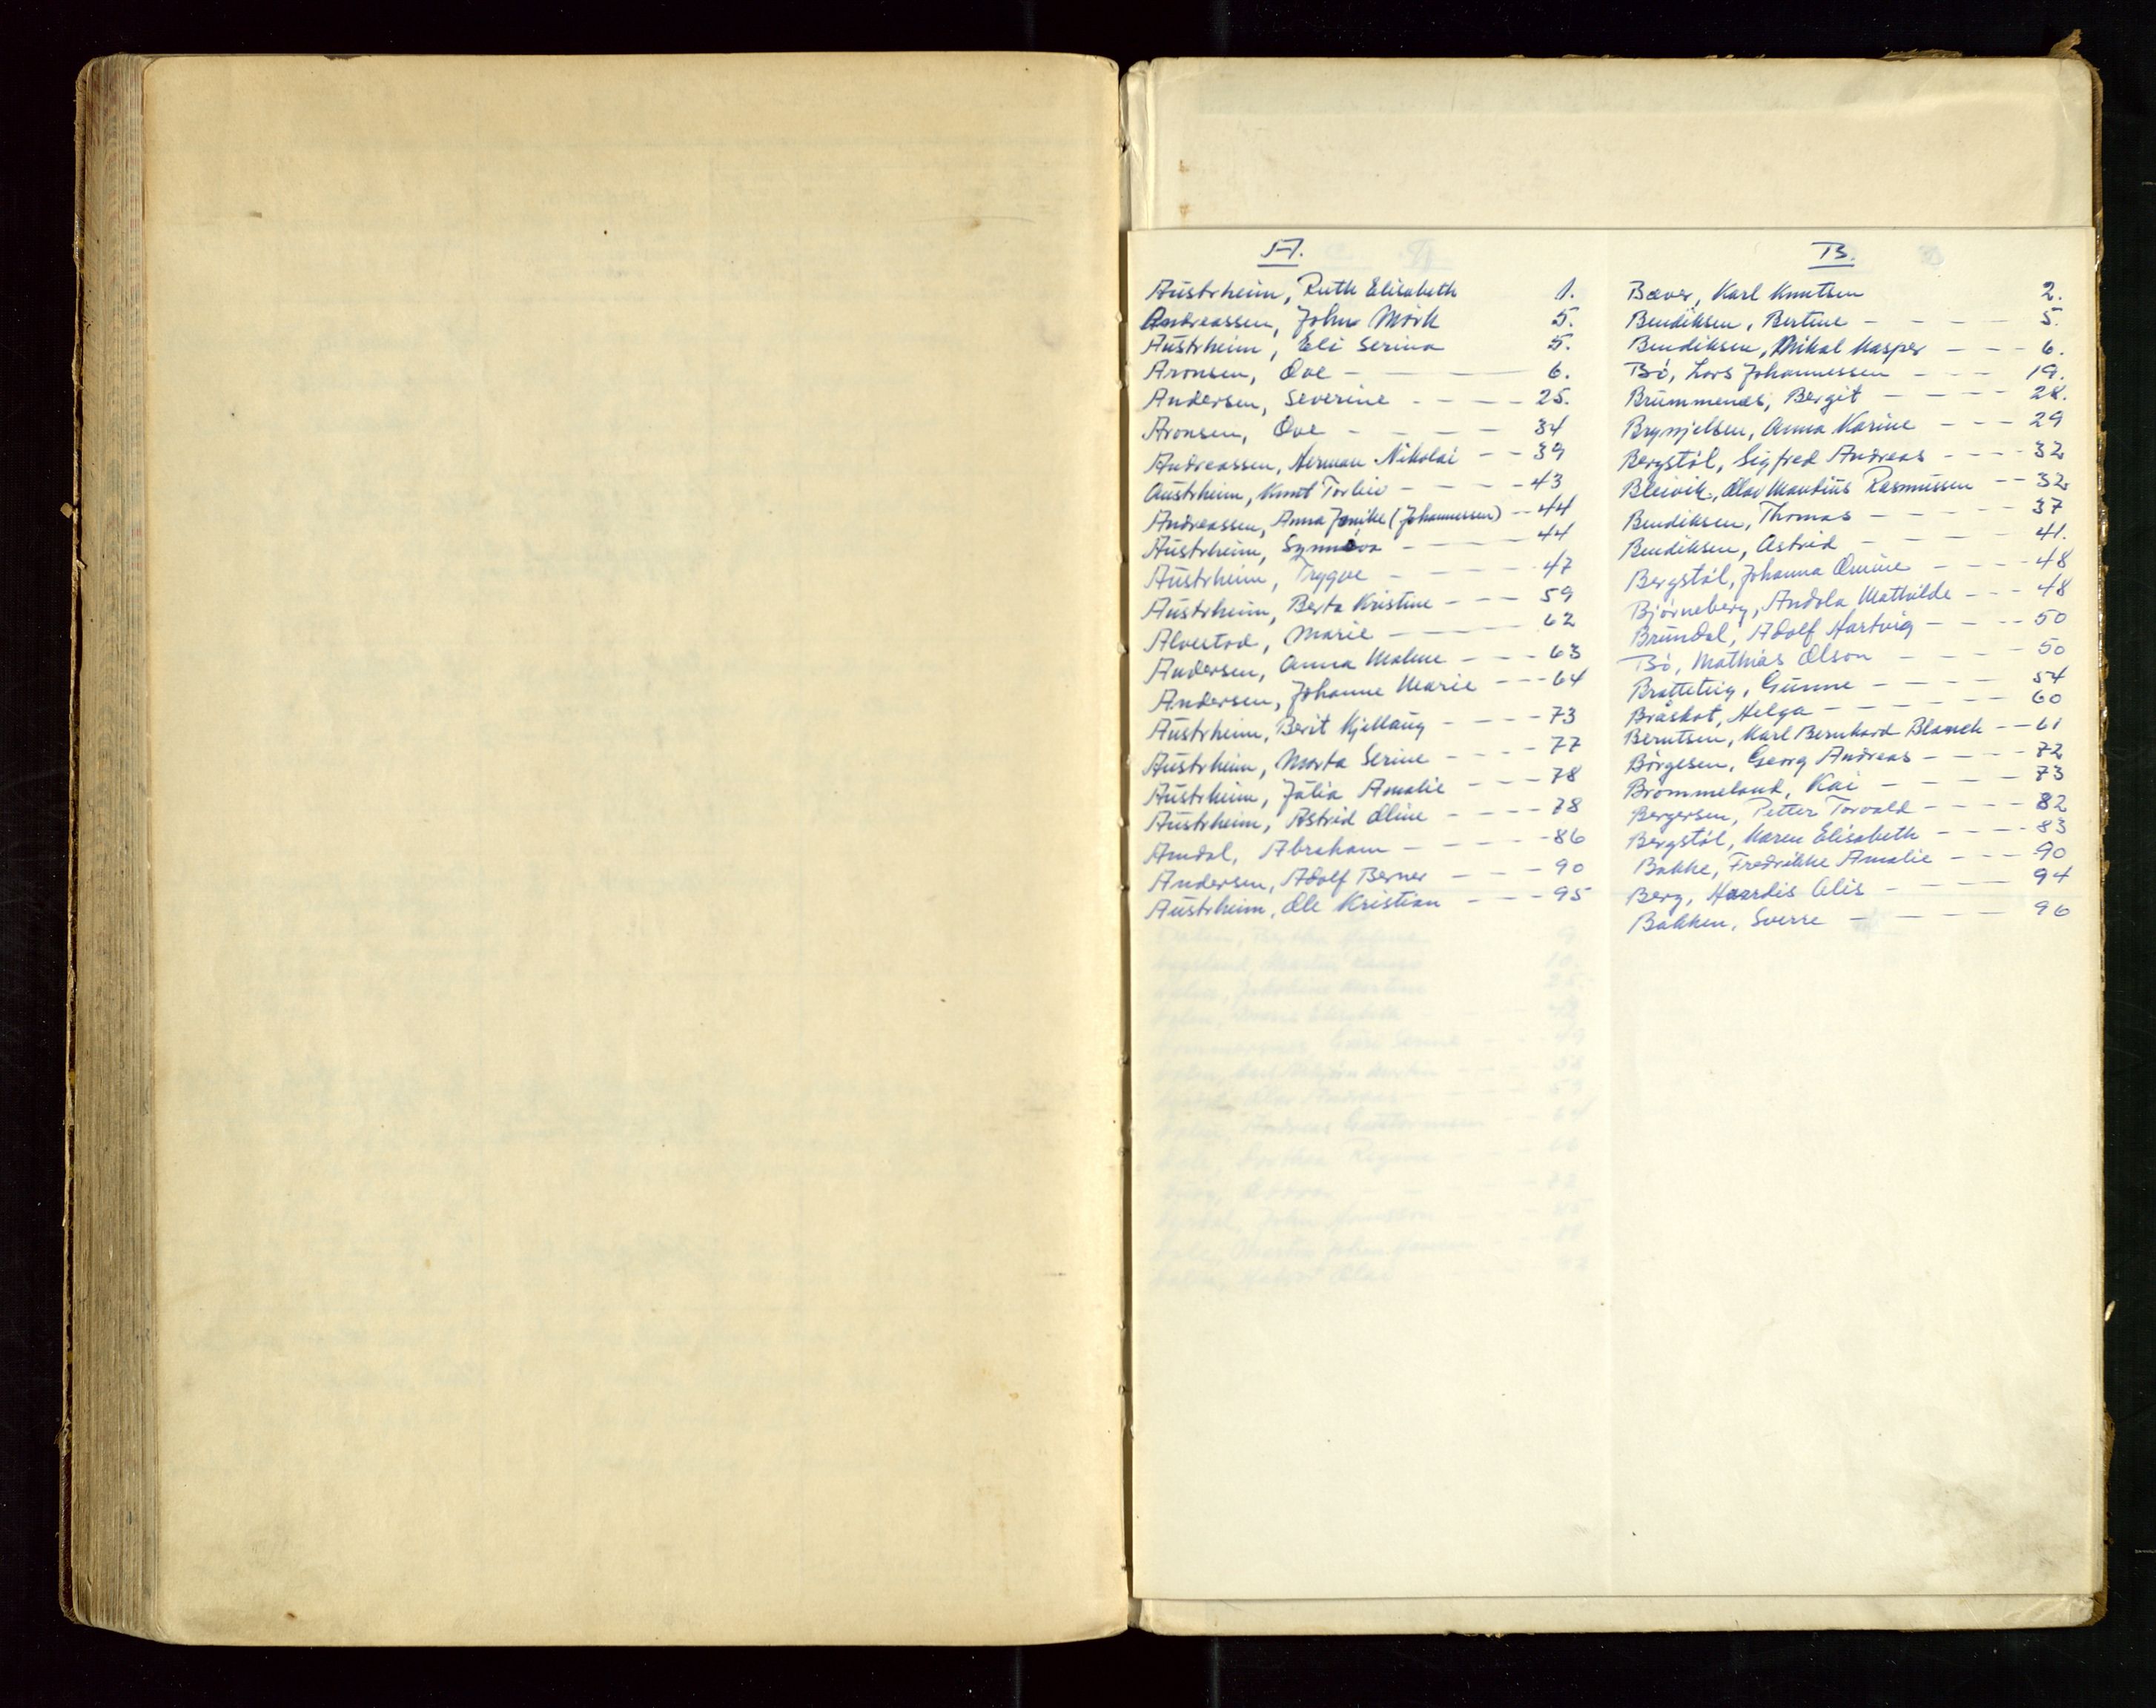 A.
Austrheim, Ruth Elisabeth 1.
Andreassen, John Mörk 5.
Austrheim, Eli Serina 5.
Aronsen, Ove - — — 6.
Andersen, Severine - - - - 25.
Aronsen, Ove - - - - 34
Andreassen, Herman Nikolai - - 39
Austrheim, Knut Torleiv - - - - 43
Andreassen, Anna Jenike (Johannessen) - - 44
Austrheim, Synnöva - - - - 44
Austrheim, Trygve - - - - 47
Austrheim, Berta Kristine - - - 59
Alvestad, Marie - - - - 62
Andersen, Anna Malene - - - 63
Andersen, Johanne Marie - - - 64
Austrheim, Berit Kjellaug - - - - 73
Austrheim, Marta Serine - - - - 77
Austrheim, Julia Amalie - - - 78
Austrheim, Astrid Oline - - - - 78
Amdal, Abraham - - - - - 86
Andersen, Adolf Berner - - - 90
Austrheim, Ole Kristian - - - 95
B.
Bæver, Karl Knutsen 2.
Bendiksen, Bertine - - - - 5.
Bendiksen, Mikal Kasper - - - 6.
Bö, Lars Johannessen - - - 19.
Brummenæs, Bergit - - - - 28.
Brynjelsen, Anna Karine - - - 29
Bergstöl, Sigfred Andreas - - - - 32
Bleivik, Olav Mandius Rasmussen - - 32
Bendiksen, Thomas - - - - 37
Bendiksen, Astrid - - - - 41.
Bergstöl, Johanna - - - - 48
Björneberg, Andola Mathilde - - - 48
Brundal, Adolf Hartvig - - - - 50
Bö, Mathias Olson - - - - 50
Bratteteig, Gunne - - - - 54
Bråskot, Helga - - - - - 60
Berntsen, Karl Bernhard Blanck - - 61
Börgesen, Georg Andreas - - - - 72
Brommeland, Kai - - - - 73
Bergersen, Petter Torvald - - - - 82
Bergstöl, Karen Elisabeth - - - - 83
Bakke, Fredrikke Amalie - - - 90
Berg, Haardis Alis - - - - 94
Bakken, Sverre - - - - 96